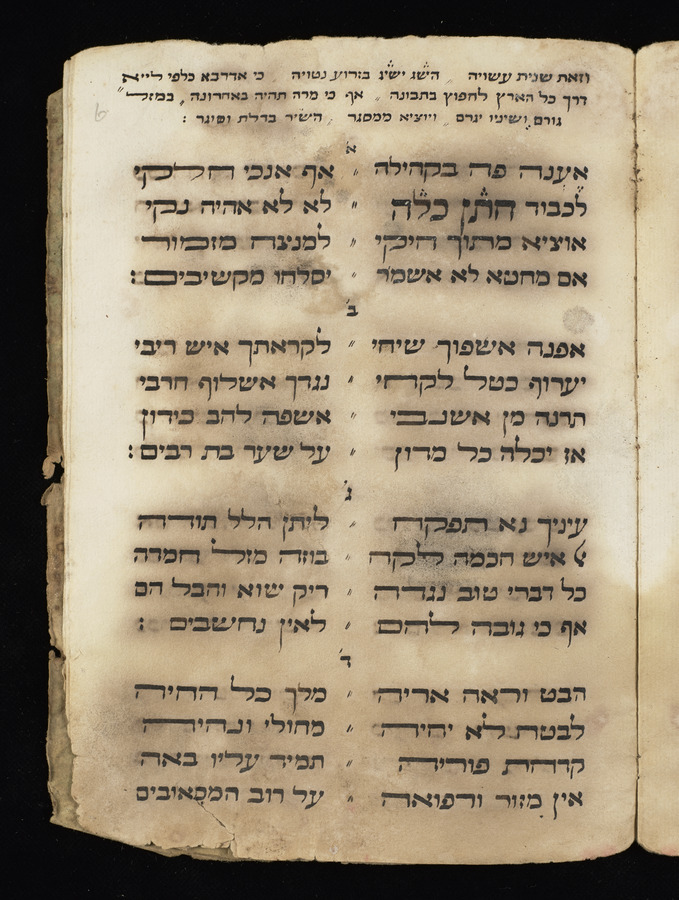 וזאת שנית עשויה ״ השג ישיג בזרוע נטויה ״ כי אדרבא כלפי לייא
דרך כל הארץ לחפוץ בתבונה ״ אף כי מרה תהיה באחרונה ״ במזל
גורם ושיניו יגרם ״ ויוציא ממסגר ״ השיר בדלת וסיגר :
א
אענה פה בקהילה ״ אף אנכי חלקי
לכבוד חתן כלה ״ לא לא אהיה נקי
אוציא מתוך חיקי ״ למנצח מזמור
אם מחטא לא אשמר ״ יסלחו מקשיבים :
ב
אפנה אשפוך שיחי ״ לקראתך איש ריבי
יערוף כטל לקחי ״ נגדך אשלוף חרבי
תרנה מן אשנבי ״ אשפה להב כידון
אז יכלה כל מדון ״ על שער בת רבים :
ג
עיניך נא תפקח ״ ליתן הלל תודה
איש חכמה ללקח ״ בוזה מזל חמדה
כל דברי טוב נגדה ״ ריק ישוא והבל הם
אף כי גובה להם ״ לאין נחשבים :
ד
הבט וראה אריה ״ מלך כל החיה
לבטח לא יחיה ״ מחולי ונהיה
קדחת פוריה ״ תמיד עליו באה
אין מזור ורפואה ״ על רוב המכאובים